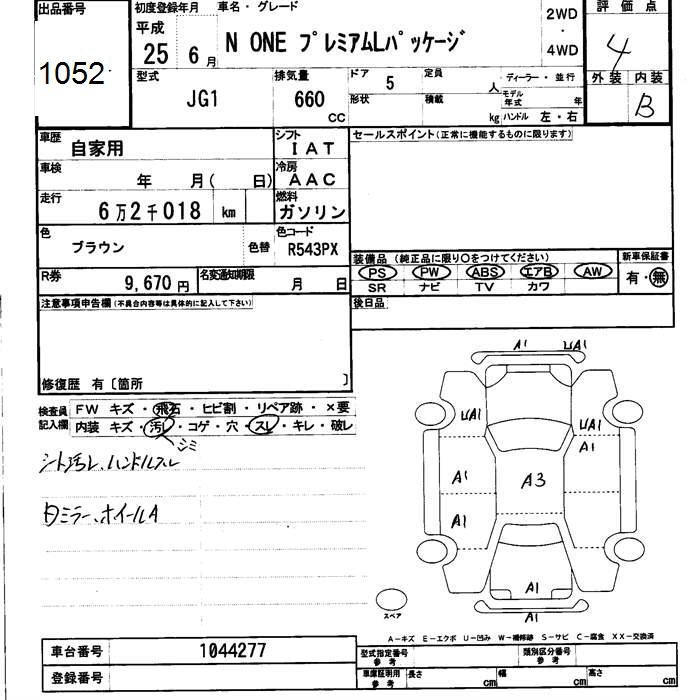 出品番号 初度登録年月 車名・グレード 2WD 評価点
1052 平成 25 6月 N ONE プレミアムLパッケージ ・ 4WD 4
型式 排気量 ドア 5 定員 人 ディーラー・並行 外装 内装
JG1 660 CC 形状 積載 kg モデル年式 年 ハンドル 左・右 B
車歴 自家用 シフト IAT セールスポイント(正常に機能するものに限ります)
車検 年 月( 日) 冷房 AAC
走行 6万2千018 km 燃料 ガソリン
色 ブラウン 色替 色コード R543PX
装備品 (純正品に限り○をつけてください) 新車保証書
PS PW ABS エアB AW 有・無
SR ナビ TV カワ
R券 9,670円 名変通知期限 月 日
後日品
注意事項申告欄(不具合内容等は具体的に記入して下さい)
修復歴 有〔箇所 〕
検査員記入欄
FW キズ・飛石・ヒビ割・リペア跡・×要
内装 キズ・汚レ・コゲ・穴・スレ・キレ・破レ
シミ
シート汚レ、ハンドルスレ
ミラー、ホイールA
A1 UA1
UA1 A1
A1 A3
A1
A1
A1
スペア
A−キズ E−エクボ U−凹み W−補修跡 S−サビ C−腐食 XX−交換済
車台番号 1044277 型式指定番号 参考 類別区分番号 参考
登録番号 車庫証明用 参考 長さ cm 幅 cm 高さ cm